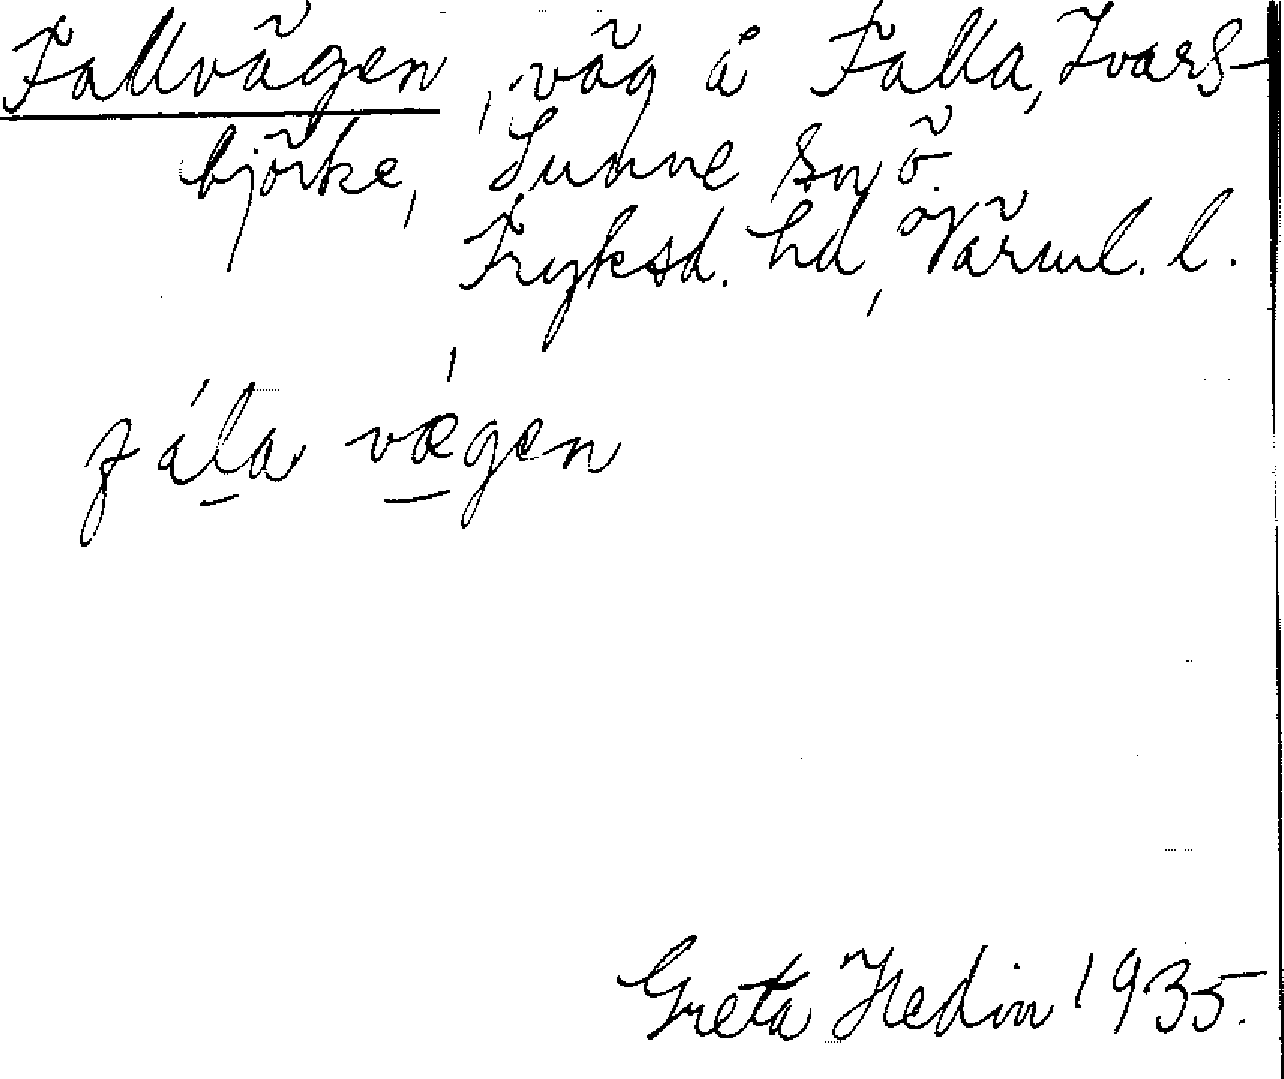 Fallvägen, väg å Falla, Ivars-
björke, Sunne sn, ö.
Fryksd. hd, Värml. l.
fála vǽgen
Greta Hedin 1935.